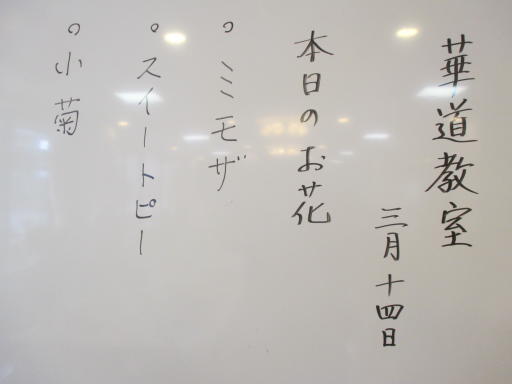 華道教室
三月十四日
本日のお花
。ミモザ
。スイートピー
。小菊